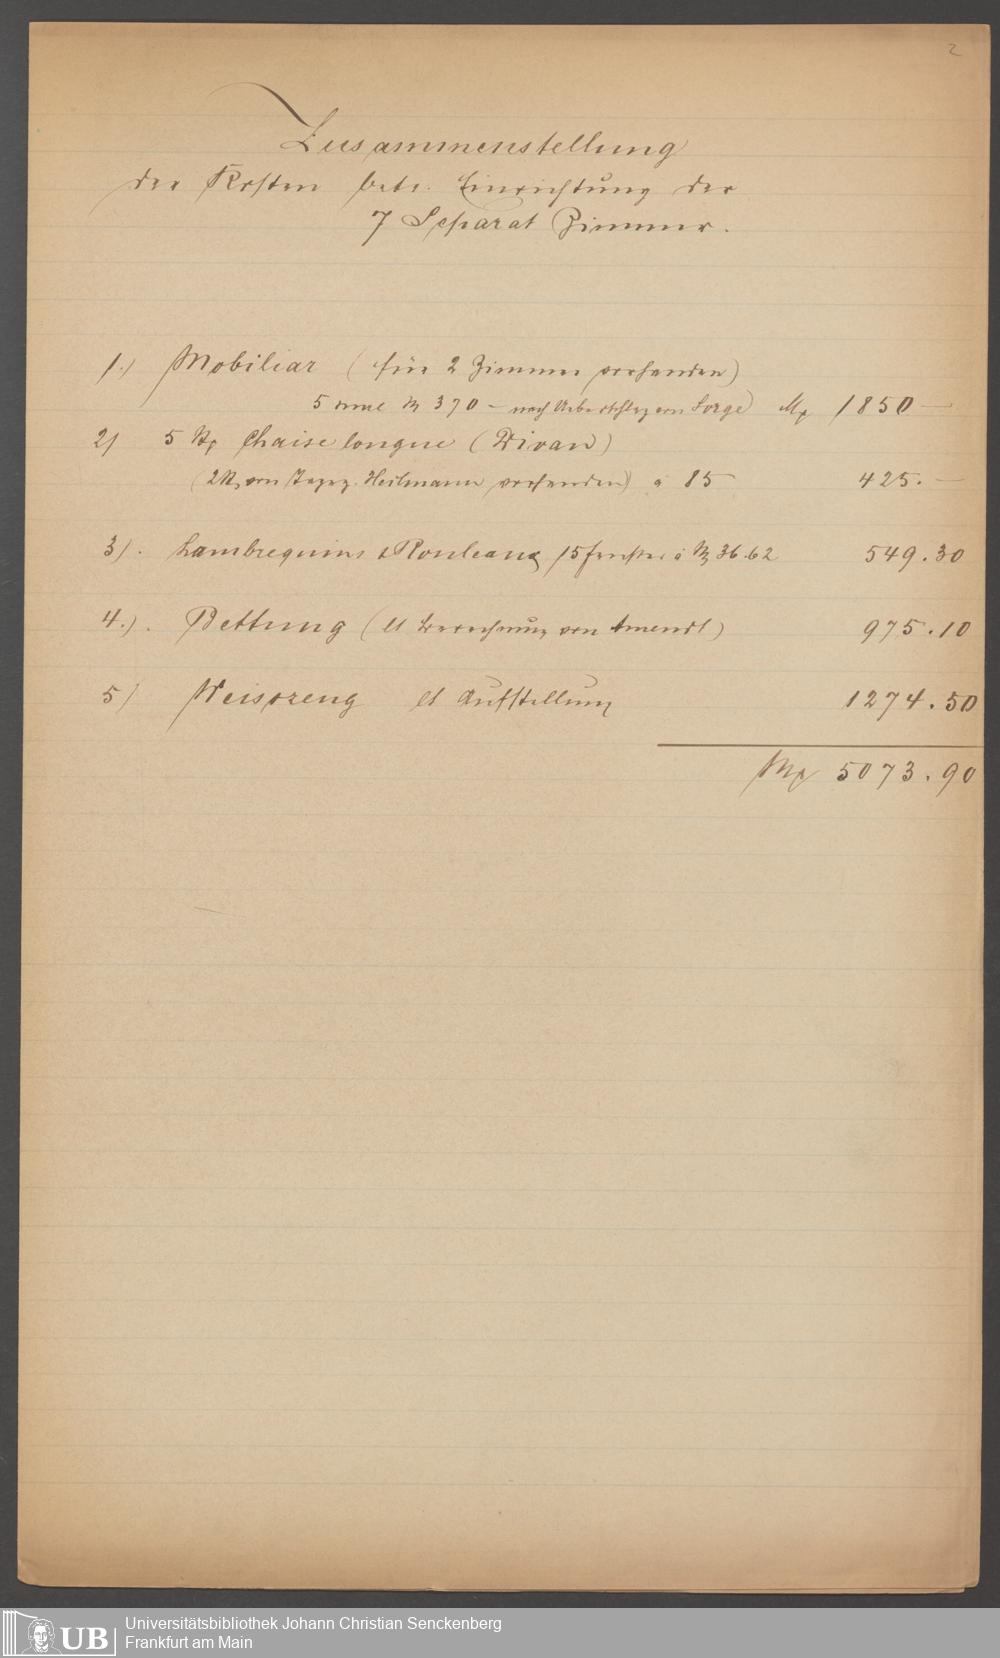 2
Zusammenstellung
der Kosten betr. Einrichtung der
7 Separat Zimmer.
1.) Mobiliar (für 2 Zimmer vorhanden)
5 mal M 370 – nach Ueberschlag von Sorge) Mk 1850 —
2) 5 St. Chaiselongue (Divan)
(2 St. von Tapez. Heilmann vorhanden) à 85 425. —
3). Lambrequins & Rouleaux 15 Fenster à M 36.62 549.30
4.). Bettung (lt Berechnung von Amendt) 975.10
5) Weiszeug lt Aufstellung 1274.50
Mk 5073.90
UB
Universitätsbibliothek Johann Christian Senckenberg
Frankfurt am Main